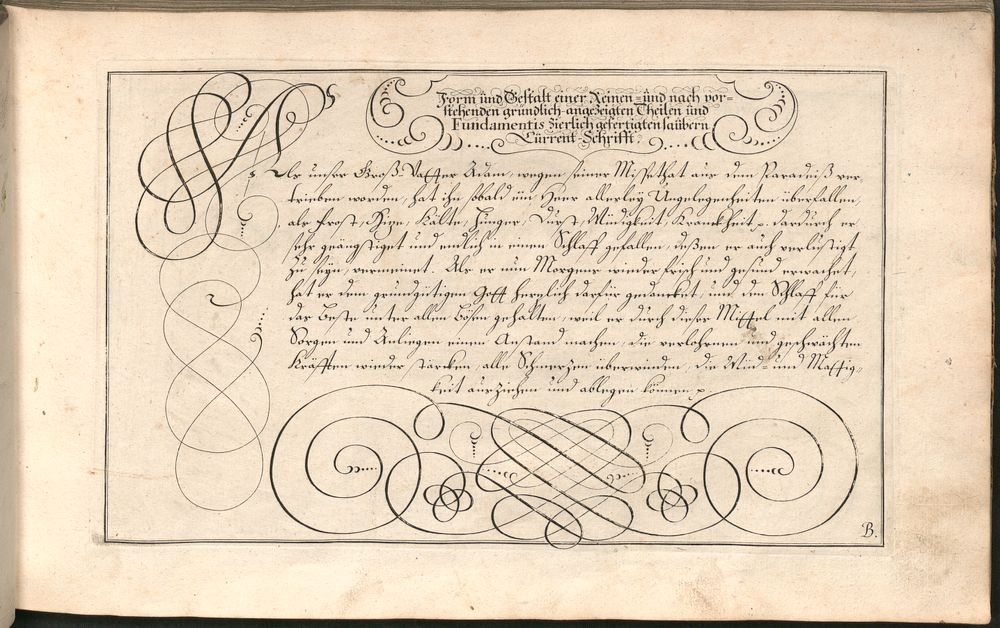 Form und Gestalt einer Reinen- und nach vor-
stehenden gründlich-angezeigten Theilen und
Fundamentis zierlich gefertigten saubern
Current-Schrifft.
Als unser Groß-Vatter Adam, wegen seiner Missethat aus dem Paradeiß ver
trieben worden, hat ihn sobald ein Heer allerley Ungelegenheiten überfallen,
als Frost, Hize, Kälte, Hunger, Durst, Müdigkeit, Kranckheit p. dardurch er
sehr geängstiget und endlich in einen Schlaff gefallen, deßen er auch verlustigt
zu seyn, vermeinet. Als er nun Morgens wieder frisch und gesund erwachet,
hat er dem grundgütigen Gott herzlich darfür gedancket, und den Schlaff für
das Beste unter allen Bösen gehalten, weil er durch dieses Mittel mit allen
Sorgen und Anligen einen Anstand machen, die verlohrnen und geschwächten
Kräfften wieder stärcken, alle Schmerzen überwinden, die Müd- und Mattig-
keit ausziehen und ablegen können p.
B.